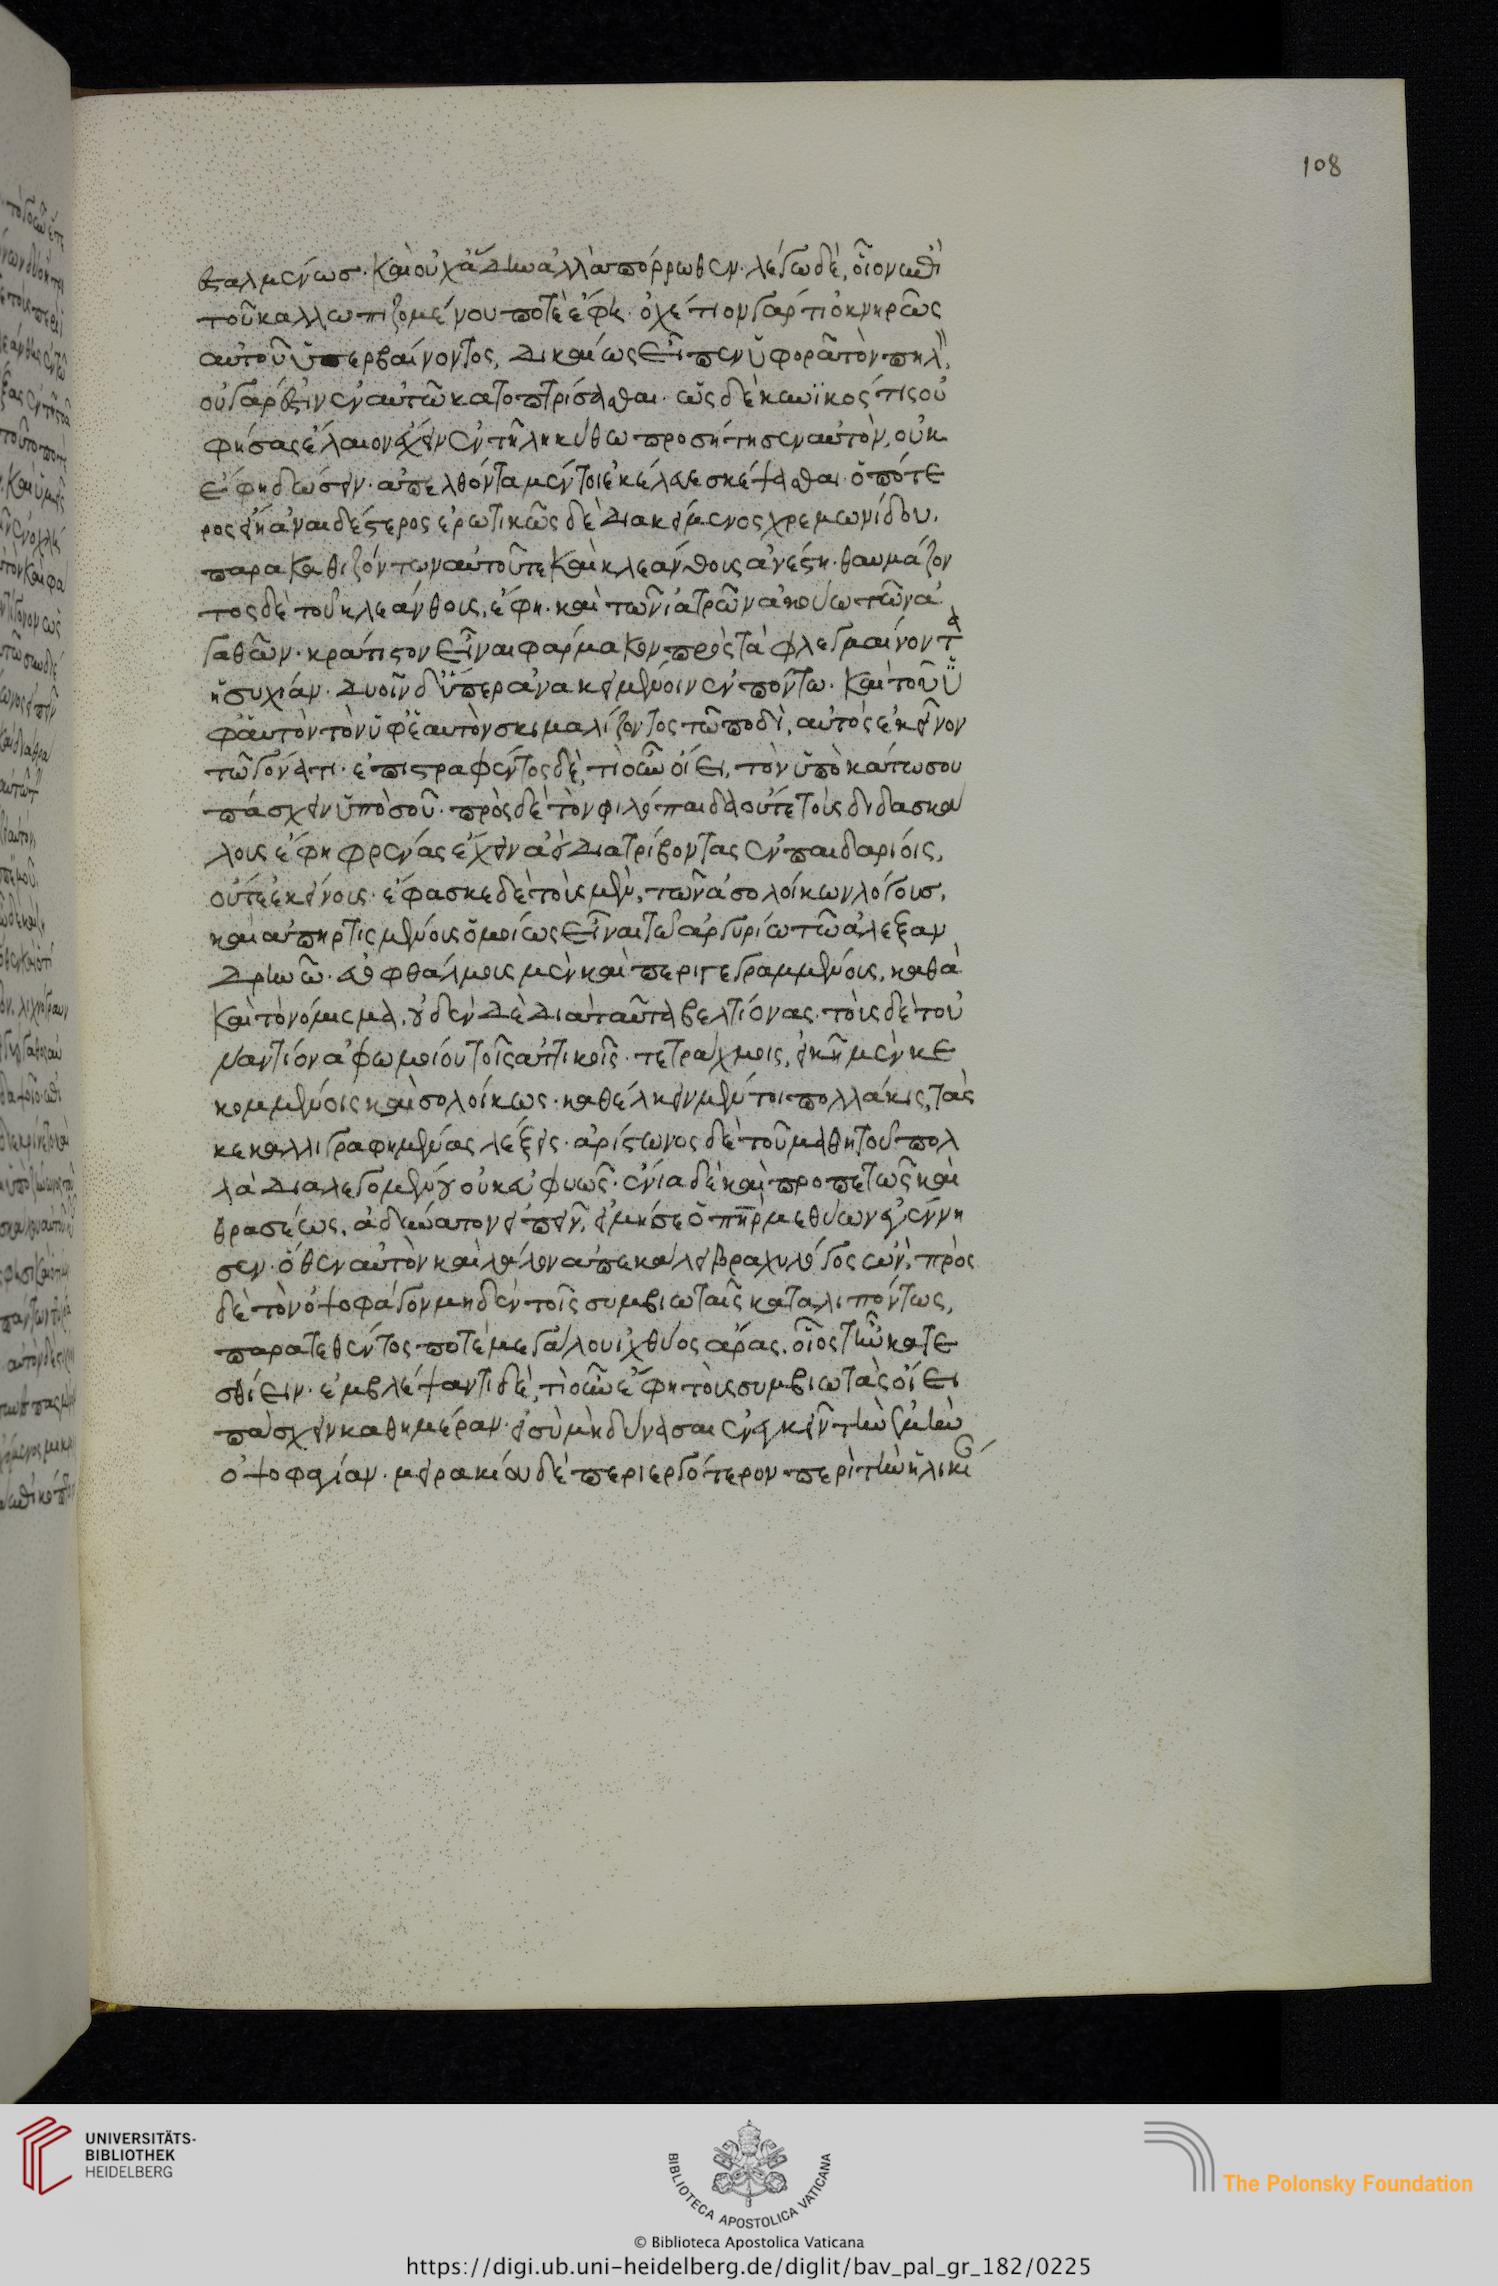 108
σταλμένως· καὶ οὐ χάδην ἀλλὰ πόρρωθεν· λέγω δὲ, οἷον ἐπὶ
τοῦ καλλωπιζομένου ποτὲ ἔφη· ὀχέτιον γάρ τι ὀκνηρῶς
αὐτοῦ ὑπερβαίνοντος, δικαίως εἶπεν ὑφορᾶ τὸν πηλ
οὐ γάρ ἐστιν ἐν αὐτῶ κατοπτρίσασθαι· ὡς δὲ κυνικός τις οὐ
φήσας ἔλαιον ἔχειν ἐν τῆ ληκύθω προσήτησεν αὐτὸν, οὐκ
ἔφη δώσειν· ἀπελθόντα μέντοι ἐκέλευε σκέψασθαι· ὁπότε
ρος εἴη ἀναιδέστερος ἐρωτικῶς δὲ διακείμενος χρεμωνίδου,
παρακαθιζόντων αὐτοῦ τε καὶ κλεάνθους ἀνέστη· θαυμάζον
τος δὲ τοῦ κλεάνθους, ἔφη· καὶ τῶν ἰατρῶν ἀκούω τῶν ἀ
γαθῶν· κράτιστον εἶναι φάρμακον πρὸς τὰ φλεγμαίνοντα
ἡσυχίαν· δυοῖν δ' ὑπερανακειμένοιν ἐν πότω· καὶ τοῦ ὑ
φ' αὑτὸν τὸν ὑφ' ἑαυτὸν σκιμαλίζοντος τῶ ποδὶ, αὐτὸς ἐκεῖνον
τῶ γόνατι· ἐπιστραφέντος δὲ, τί οὖν οἴει, τὸν ὑποκάτω σου
πάσχειν ὑπὸ σοῦ· πρὸς δὲ τὸν φιλόπαιδα οὔτε τοὺς διδασκά
λους ἔφη φρένας ἔχειν ἀεὶ διατρίβοντας ἐν παιδαρίοις,
οὔτε ἐκείνους· ἔφασκε δὲ τοὺς μὲν, τῶν ἀσολοίκων λόγους,
καὶ ἀπηρτισμένους ὁμοίως εἶναι τῶ ἀργυρίω τῶ ἀλεξαν
δρινῶ· εὐοφθάλμοις μὲν καὶ περιγεγραμμένοις, καθὰ
καὶ τὸ νόμισμα, οὐδὲν δὲ διὰ ταῦτα βελτίονας· τοὺς δὲ τοὐ
ναντίον ἀφωμοίου τοῖς ἀττικοῖς· τετράχμοις, εἰκῆ μὲν κε
κομμένοις καὶ σολοίκως· καθέλκειν μέντοι πολλάκις, τὰς
κεκαλλιγραφημένας λέξεις· ἀρίστωνος δὲ τοῦ μαθητοῦ πολ
λὰ διαλεγομένου οὐκ εὐφυῶς· ἔνια δὲ καὶ προπετῶς καὶ
θρασέως, ἀδύνατον εἰπεῖν, εἰ μή σε ὁ πηρ μεθύων ἐγέννη
σεν· ὅθεν αὐτὸν καὶ λάλον ἀπεκάλει βραχυλόγος ὤν, πρὸς
δὲ τὸν ὀψοφάγον μηδὲν τοῖς συμβιωταῖς καταλιπόντως,
παρατεθέντος ποτὲ μεγάλου ἰχθύος ἄρας, οἷος τ' ἦν κατε
σθίειν· ἐμβλέψαντι δὲ, τί οὖν ἔφη τοὺς συμβιωτὰς οἴει
πάσχειν καθημέραν· εἰ σὺ μὴ δύνασαι ἐνεγκεῖν τὴν ἐμὴν
ὀψοφαγίαν· μειρακίου δὲ περιεργότερον περὶ τὴν ἡλικί
UNIVERSITÄTS-
BIBLIOTHEK
HEIDELBERG
BIBLIOTECA APOSTOLICA VATICANA
© Biblioteca Apostolica Vaticana
The Polonsky Foundation
https://digi.ub.uni-heidelberg.de/diglit/bav_pal_gr_182/0225